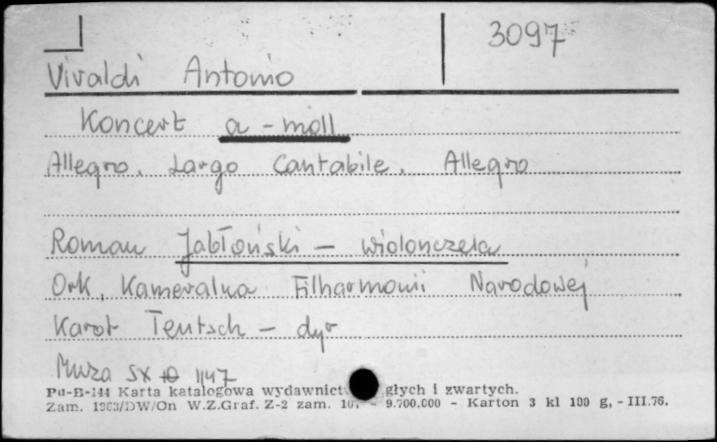 3097
Vivaldi Antonio
Koncert a-moll
Allegro. Largo Cantabile. Allegro
Roman Jabłoński - wiolonczela
Ork. Kameralna Filharmonii Narodowej
Karol Teutsch - dyr
Muza SX 1147
Pu-B-144 Karta katalogowa wydawnict głych i zwartych.
Zam. 1963/DW/On W.Z.Graf. Z-2 zam. 9.700.000 - Karton 3 kl 180 g, - III.76.